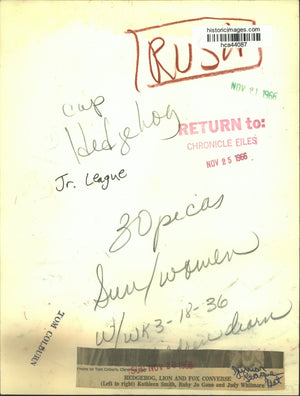 historicimages.com
hca44087
RUSH
NOV 21 1966
cap
Hedgehog
RETURN to:
CHRONICLE FILES
NOV 25 1966
Jr. League
30 picas
Sun/women
w/WK3-18-36
TOM COLBURN
SUN NOV 20 1966
HEDGEHOG, LION AND FOX CONVERSE
(Left to right) Kathleen Smith, Ruby Jo Gano and Judy Whitmore
Junior
League